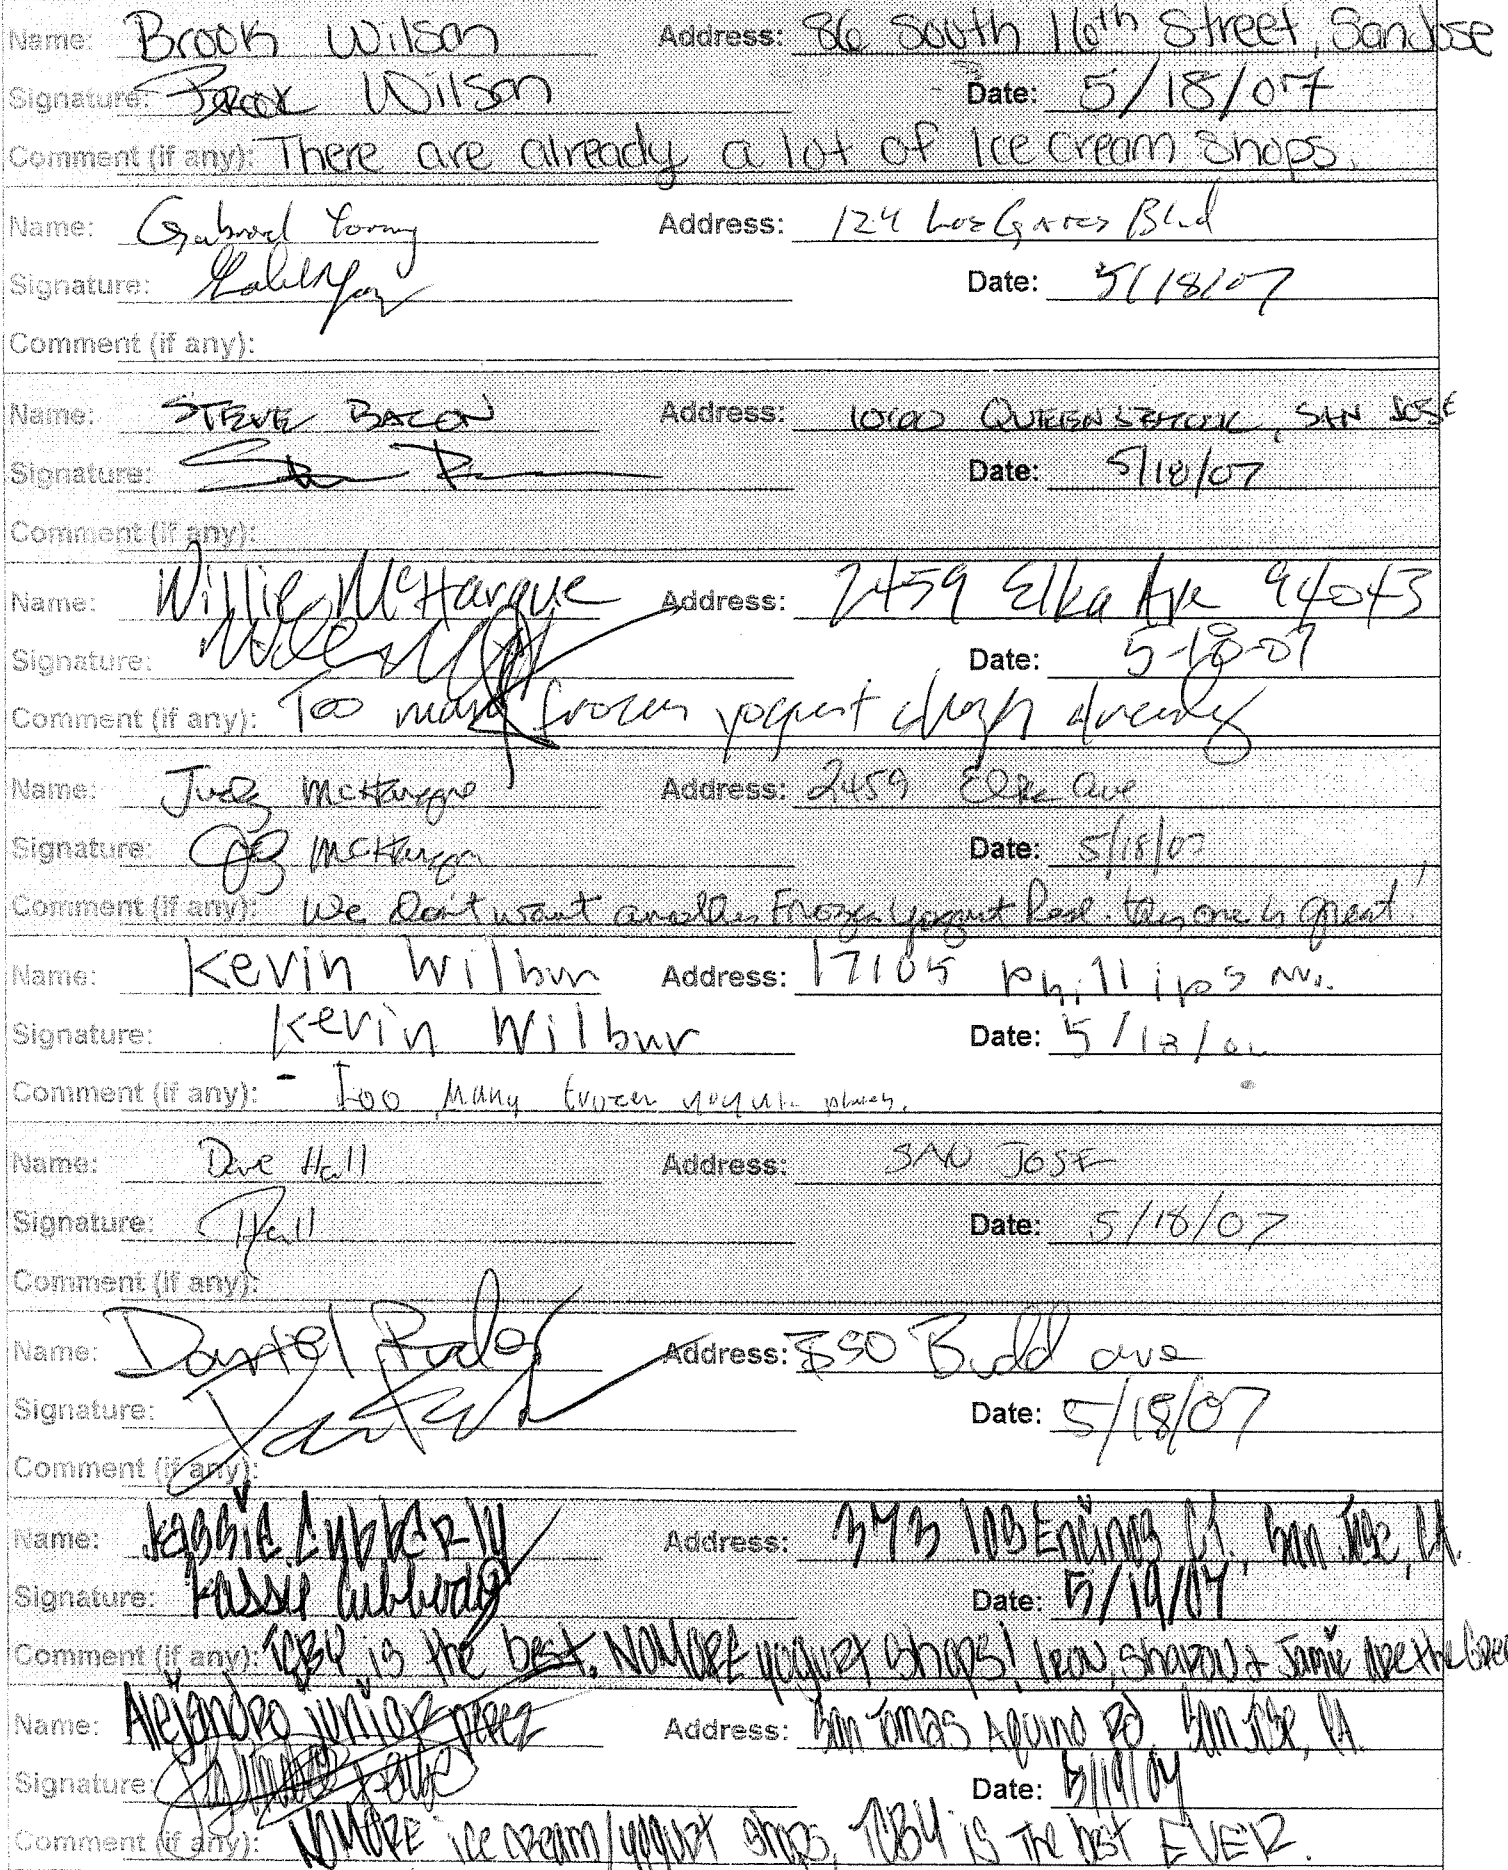 Name: Brook Wilson Address: 86 South 16th Street, San Jose
Signature: Brook Wilson Date: 5/18/07
Comment (if any): There are already a lot of Ice cream shops.
Name: Gabriel Young Address: 124 Los Gatos Blvd
Signature: Date: 5/18/07
Comment (if any):
Name: STEVE BACON Address: SAN JOSE
Signature: Date: 5/18/07
Comment (if any):
Name: Willie McHargue Address: 2459 Elka Ave 94043
Signature: Date: 5-18-07
Comment (if any): Too many frozen yogurt shops already
Name: Judy McHargue Address: 2459 Elka Ave
Signature: Judy McHargue Date: 5/18/07
Comment (if any): We don't want another Frozen Yogurt this one is great!
Name: Kevin Wilbur Address: 17105 Phillips
Signature: Kevin Wilbur Date: 5/18/
Comment (if any): - Too Many frozen yogurt places.
Name: Dave Hall Address: SAN JOSE
Signature: Hall Date: 5/18/07
Comment (if any):
Name: Daniel Address: Budd ave
Signature: Date: 5/18/07
Comment (if any):
Name: Kassie Cubberly Address: 373 Los Encinos Ct., San Jose, CA.
Signature: Kassie Cubberly Date: 5/19/07
Comment (if any): TCBY is the best. NO MORE yogurt shops! Sharon & Jamie are the
Name: Alejandro junior perez Address: San Tomas Aquino Rd. San Jose, CA.
Signature: Date: 5/19/07
Comment (if any): NO MORE ice cream/yogurt shops, TCBY is the best EVER.